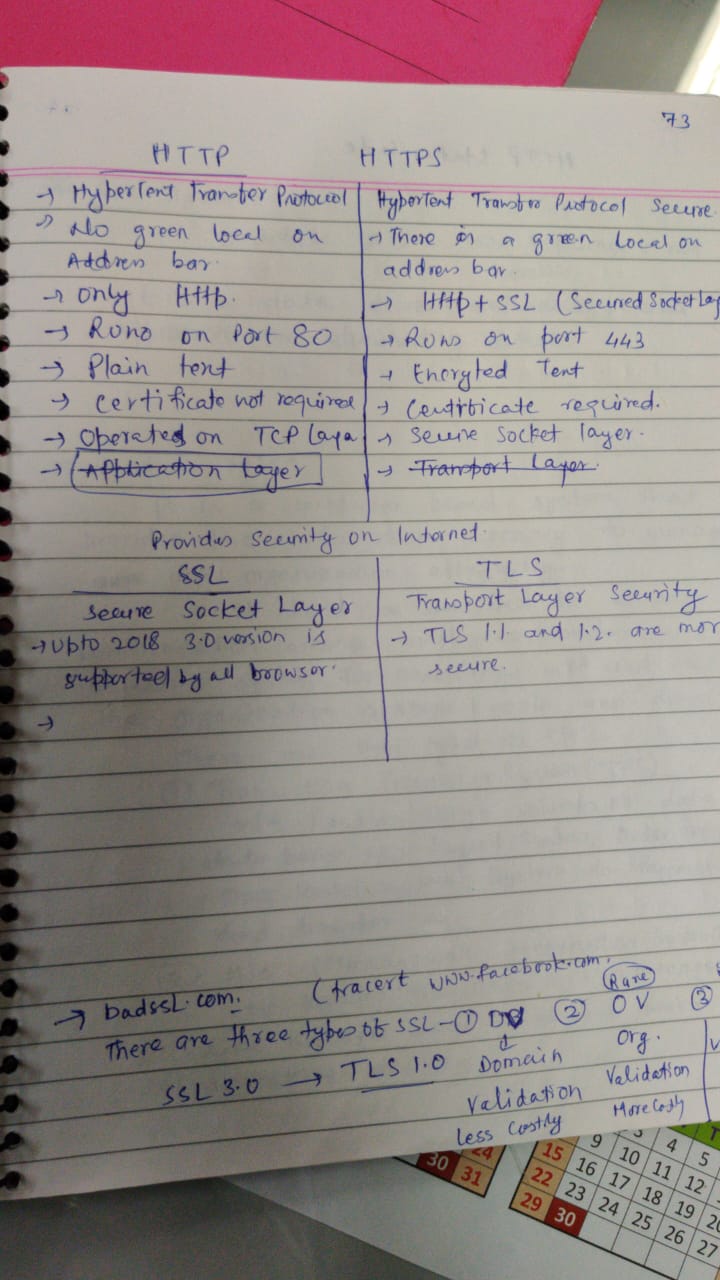 73
HTTP HTTPS
→ Hypertent Transfer Protocol Hypertent Transfer Protocol Secure
→ No green local on → There is a green local on
Address bar. address bar.
→ only Http. → Http + SSL (Secured Socket Lay
→ Runs on Port 80 → Runs on port 443
→ Plain tent → Encryted Tent
→ certificate not required → Certificate required.
→ Operated on TCP Laya → Secure Socket layer.
→ Application Layer → Transport Layer.
Provides Security on Internet.
SSL TLS
Secure Socket Layer Transport Layer Security
→ Upto 2018 3.0 version is → TLS 1.1. and 1.2. are mor
supported by all browser. secure.
→
→ badssl.com. (tracert www.facebook.com.
(Rare)
There are three types of SSL - ① DV ② OV ③
SSL 3.0 → TLS 1.0 Domain Org.
Validation Validation
Less Costly More Costly
T
9 3 4 5
24 15 10 11 12
30 31 22 16 17 18 19 20
29 23 24 25 26 27
30